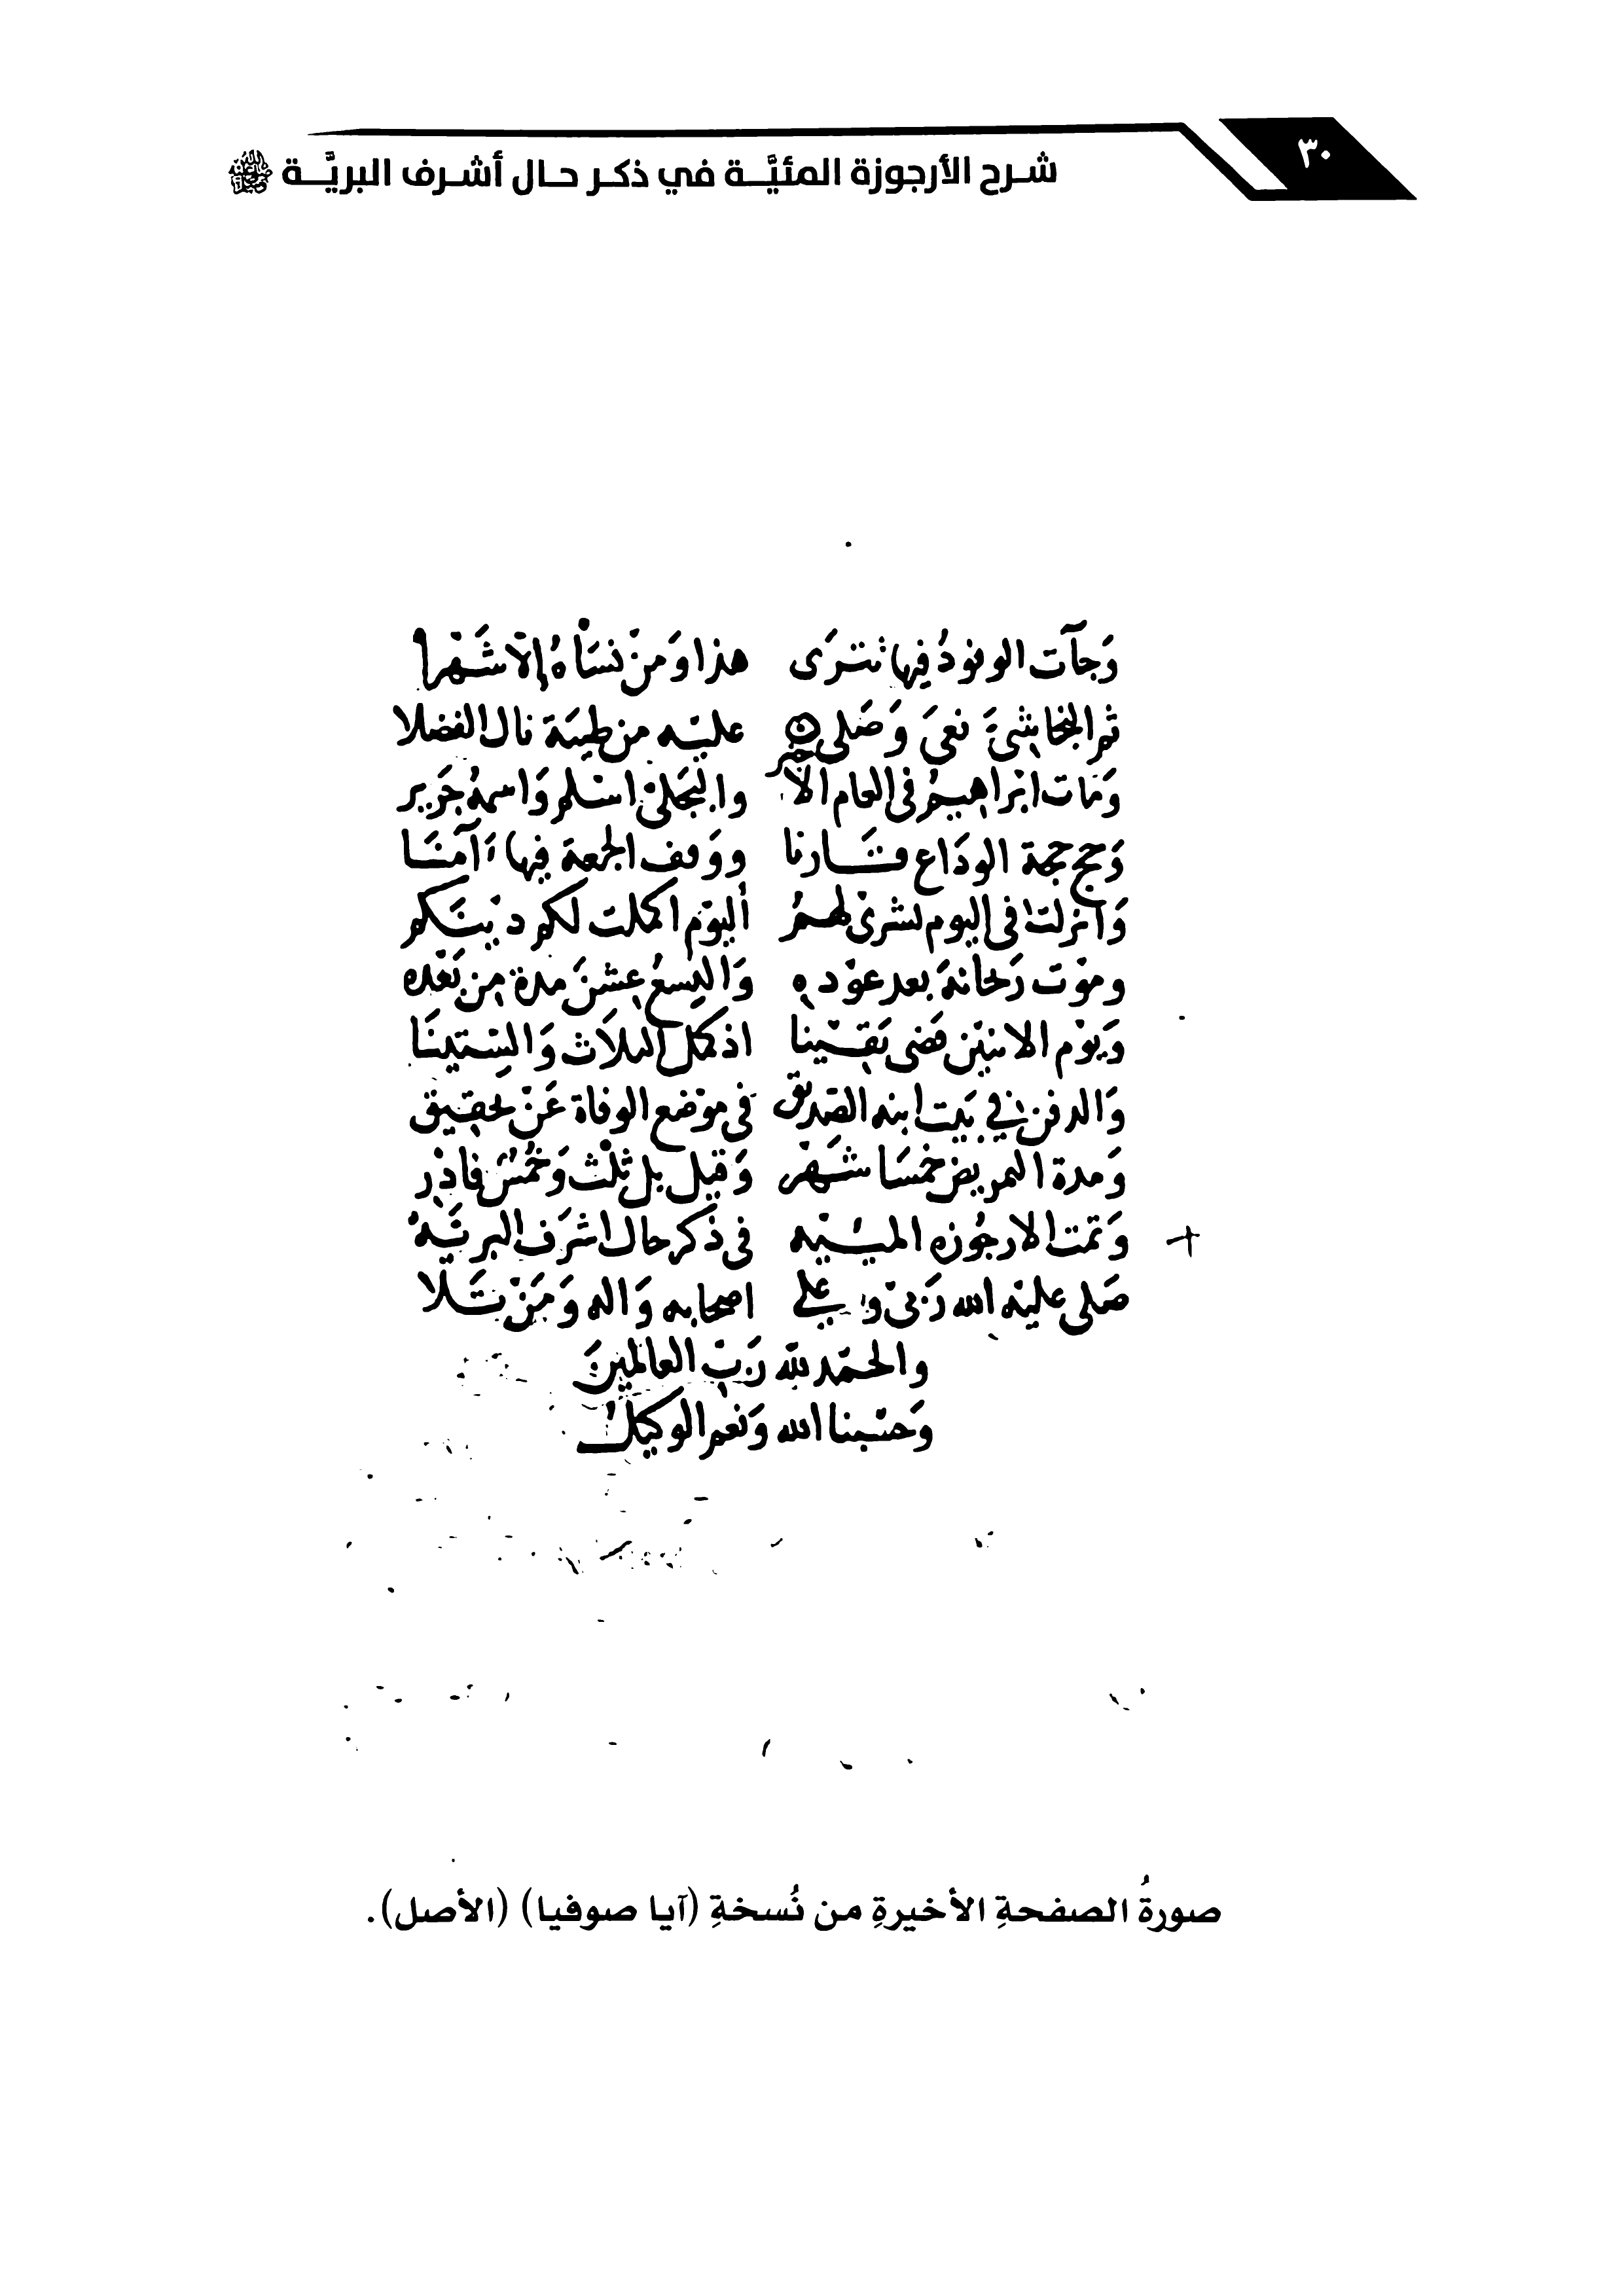 ٣٠
شرح الأرجوزة المئيَّة في ذكر حال أشرف البريَّة ﷺ
وَجآت الوفودُ فيها تترَى هذا وَمنْ نسَاهُ إلّا شَهْرا
ثم النجاشيَّ نعىَ وَصَلى عليْه من طيبَة نال الفضلا
وَمَات ابْراهيمُ في العام الأخير والبَجَلىْ اسْلم وَاسمهُ جَرير
وَحج حجة الودَاع قَارنا ووَقف الجمعة فيها ءَامنَا
وَانزلت في اليوم بشرىْ لهمُ أليوْم اكملت لكم ديْنَكم
وموْت رَيحانةَ بعد عوْده وَالتسعُ عشْنَ مدة مِن بَعْده
وَيوْم الاثنيْن قضى يَقيْنا اذ كمل الثلاث وَالستينَا
وَالدفن في بَيت ابنه الصديق في موْضع الوفاة عَنْ تحقيق
وَمدة التمريض خمسَا شَهْر وَقيل بل ثلْث وَخُمْسٌ فادْر
وَتمت الارجُوزه الميْيه في ذكر حال اشرَف البريَّه
صَلى عليْه الله رَبىْ وعلى اصحابه وَاله وَمَنْ تَلا
والحمْد للّه رَبّ العالمينَ
وَحسْبنا الله وَنعم الوكيلُ
صورةُ الصفحةِ الأخيرةِ من نُسخةِ (آيا صوفيا) (الأصل).